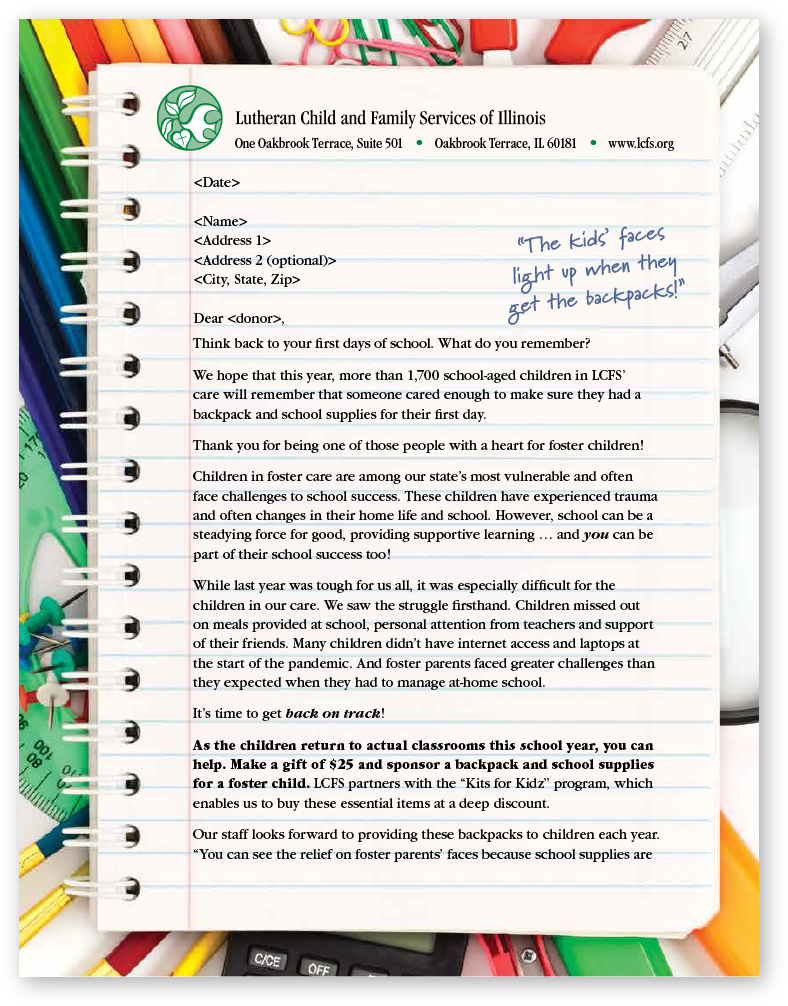 Lutheran Child and Family Services of Illinois
One Oakbrook Terrace, Suite 501 • Oakbrook Terrace, IL 60181 • www.lcfs.org
<Date>
<Name>
<Address 1>
<Address 2 (optional)>
<City, State, Zip>
"The kids' faces
light up when they
get the backpacks!"
Dear <donor>,
Think back to your first days of school. What do you remember?
We hope that this year, more than 1,700 school-aged children in LCFS'
care will remember that someone cared enough to make sure they had a
backpack and school supplies for their first day.
Thank you for being one of those people with a heart for foster children!
Children in foster care are among our state's most vulnerable and often
face challenges to school success. These children have experienced trauma
and often changes in their home life and school. However, school can be a
steadying force for good, providing supportive learning … and you can be
part of their school success too!
While last year was tough for us all, it was especially difficult for the
children in our care. We saw the struggle firsthand. Children missed out
on meals provided at school, personal attention from teachers and support
of their friends. Many children didn't have internet access and laptops at
the start of the pandemic. And foster parents faced greater challenges than
they expected when they had to manage at-home school.
It's time to get back on track!
As the children return to actual classrooms this school year, you can
help. Make a gift of $25 and sponsor a backpack and school supplies
for a foster child. LCFS partners with the "Kits for Kidz" program, which
enables us to buy these essential items at a deep discount.
Our staff looks forward to providing these backpacks to children each year.
"You can see the relief on foster parents' faces because school supplies are
27
100
80
90
C/CE
OFF